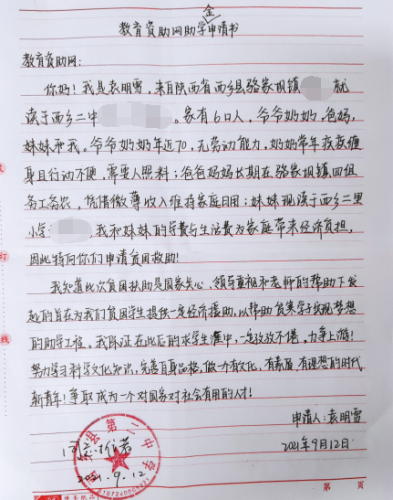 教育资助网助学金申请书
教育资助网：
你好！我是袁明雪，来自陕西省西乡县骆家坝镇 就
读于西乡二中 。家有6口人，爷爷奶奶，爸妈，
妹妹和我。爷爷奶奶年近70，无劳动能力，奶奶常年疾病缠
身且行动不便，需要人照料；爸爸妈妈长期在骆家坝镇回组
务工务农，凭借微薄收入维持家庭日用；妹妹现读于西乡二里
小学 ，我和妹妹的学费与生活费为家庭带来经济负担，
因此特向你们申请贫困救助！
我知道此次贫困扶助是国家关心，领导重视和老师的帮助下发
起的旨在为我们贫困学生提供一定经济援助，以帮助贫寒学子实现梦想
的助学工程。我保证在此后的求学生涯中，一定孜孜不倦，力争上游！
努力学习科学文化知识，完善自身品格，做一个有文化，有素质，有理想的时代
新青年！争取成为一个对国家对社会有用的人才！
申请人：袁明雪
2021年9月12日
县第二中学
2021.9.12
第 页